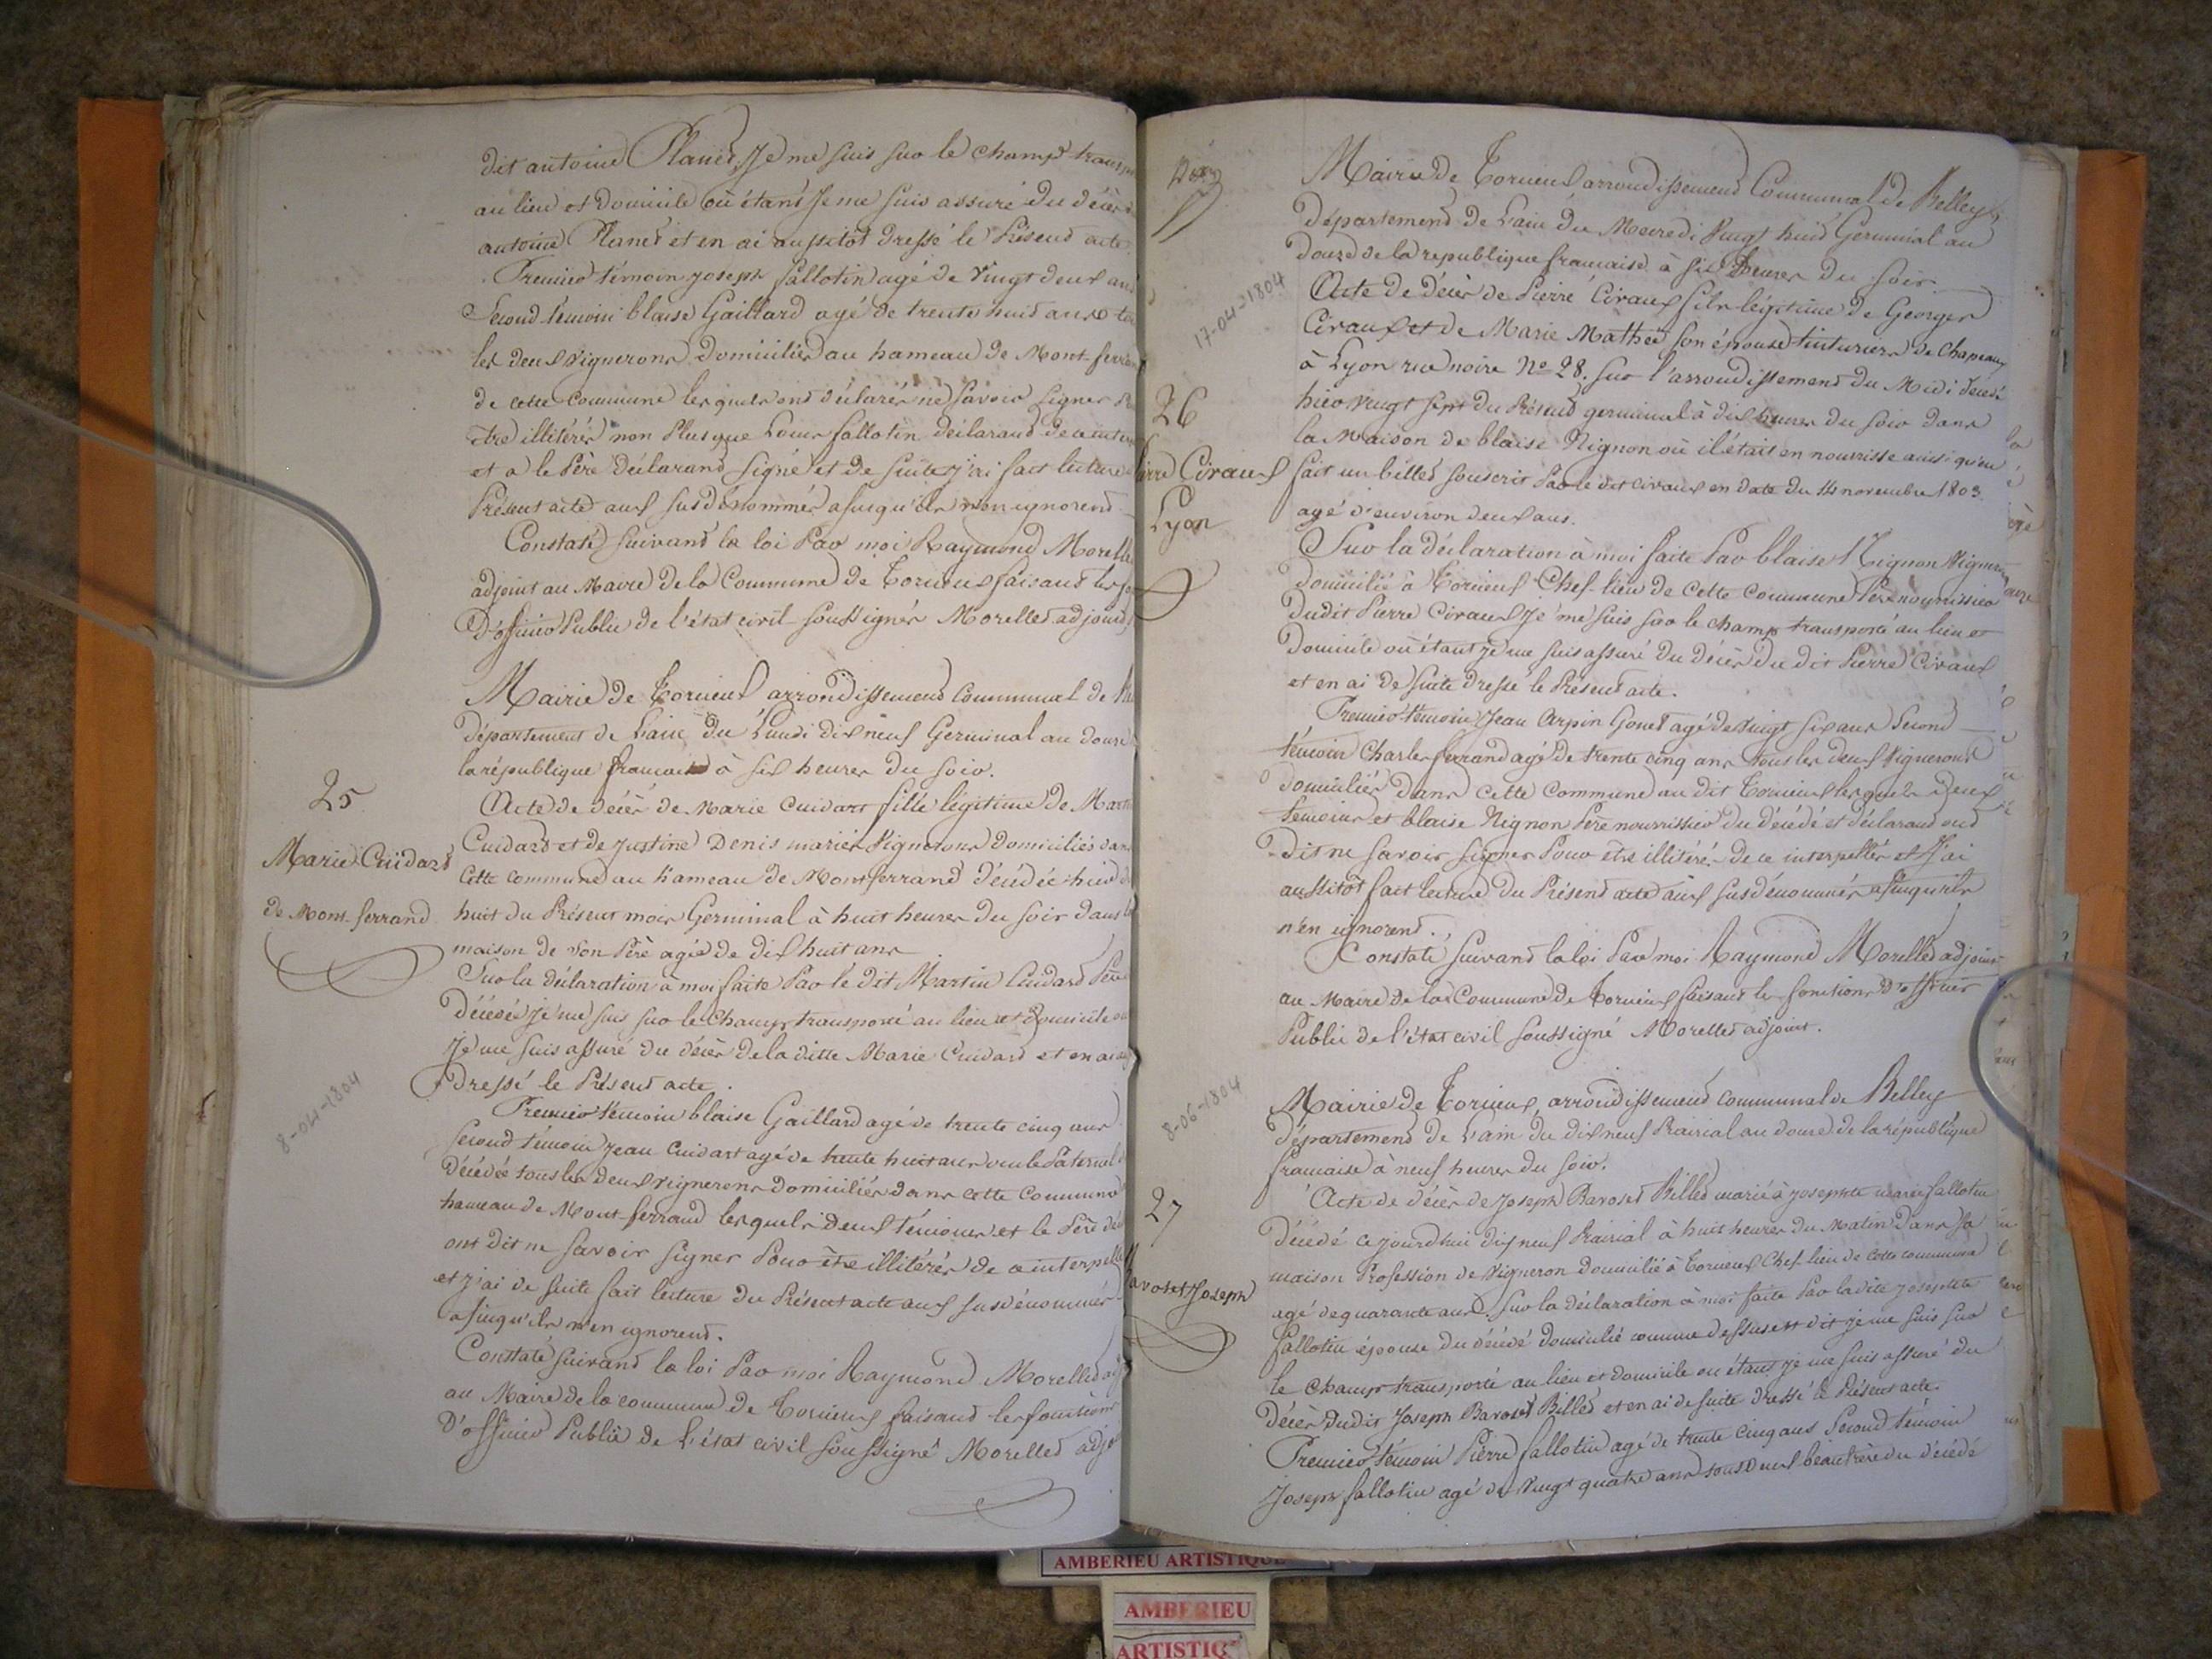 dit antoine Planet, Je me suis sur le champ
au lieu et domicile où étant Je me suis assuré du décès
antoine Planet et en ai aussitôt dressé le Présent acte
Premier témoin joseph fallotin agé de vingt deux ans
Second témoin blaise Gaillard agé de trente huit ans
les deux vignerons domiciliés au hameau de Mont-ferran
de cette commune lesquels ont déclarés ne savoir signer
être illitérés non Plus que Louis fallotin déclarant de ce
et a le Père déclarant signé et de suite j'ai fait lecture
Présent acte aux susdénommés afinqu'ils n'en ignorent
Constaté suivant la loi Par moi Raymond Morelle
adjoint au Maire de la Commune de Torcieux faisant les
D'officier Public de l'état civil soussigné Morellet adjoint
Mairie de Torcieux arrondissement Communal de
Département de L'ain du Lundi dix neuf Germinal an douze
la république francaise à six heures du soir.
25
Marie Cuidard
de Mont-ferrand
8-04-1804
Acte de décès de Marie Cuidart fille légitime de
Cuidard et de Justine Denis mariés Vignerons Domiciliés dans
Cette commune au hameau de Montferrand décédée hier
huit du Présent mois Germinal à huit heures du soir dans
maison de son Père agée de dix huit ans
Sur la déclaration à moi faite Par le dit Martin Cuidard Père
Décédée je me suis sur le champ transporté au lieu et domicile
Je me suis assuré du décès de la ditte Marie Cuidard et en ai
dressé le Présent acte.
Premier témoin blaise Gaillard agé de trente cinq ans
second témoin Jean Cuidart agé de trente huit ans oncle Paternel
Décédée tous les deux vignerons domiciliés dans cette commune
hameau de Mont-ferrand lesquels deux témoins et le Père
ont dit ne savoir signer Pour être illitérés de ce
et j'ai de suite fait lecture du Présent acte aux susdénommés
afinqu'ils n'en ignorent.
Constaté suivant la loi Par moi Raymond Morellet
au Maire de la commune de Torcieux faisant les fonctions
D'officier Public de L'état civil soussigné Morellet
Mairie de Torcieux arrondissement Communal de Belley
Département de L'ain du Mercredi Vingt huit Germinal an
douze de la republique francaise à six heures du soir
17-04-1804
26
Ciraux
Lyon
Acte de décès de Pierre Ciraux fils légitime de Georges
Ciraux et de Marie Mathée son épouse tinturiers de Chapeaux
à Lyon rue noire No 28. sur l'arrondissement du Midi décédé
hier vingt sept du Présent germinal à dix heures du soir dans
la Maison de blaise Nignon où il était en nourrisse ainsi qu'en
fait un billet souscrit Par le dit Ciraux en date du 14 novembre 1803.
agé d'environ deux ans.
Sur la déclaration à moi faite Par blaise Nignon Vigneron
domicilié à Torcieux Chef-lieu de Cette Commune Père nourrissier
Dudit Pierre Ciraux Je me suis sur le champ transporté au lieu et
Domicile où étant je me suis assuré du décès du dit Pierre Ciraux
et en ai de suite dressé le Présent acte.
Premier témoin Jean Carpin Gonet agé de Vingt six ans Second
témoin Charles ferrand agé de trente cinq ans tous les deux Vignerons
domiciliés dans cette commune au dit Torcieux lesquels deux
témoins et blaise Nignon Père nourrissier du décédé et déclarant ont
dit ne savoir signer Pour être illitérés de ce interpellés et J'ai
aussitôt fait lecture du Présent acte aux susdénommés afinqu'ils
n'en ignorent.
Constaté suivant la loi Par moi Raymond Morellet adjoint
au Maire de la Commune de Torcieux faisant les fonctions D'officier
Public de l'état civil soussigné Morellet adjoint.
Mairie de Torcieux, arrondissement communal de Belley
Département de L'ain du dix neuf Prairial an douze de la république
francaise à neuf heures du soir.
8-06-1804
27
Joseph
Acte de décès de Joseph Bavoset Billet marié à josephte marie fallotin
Décédé ce jourdhui dix neuf Prairial à huit heures du Matin dans sa
maison Profession de Vigneron domicilié à Torcieux Chef-lieu de cette commune
agé de quarante ans. Sur la déclaration à moi faite Par ladite josephte
fallotin épouse du décédé domicilié comme dessus est dit je me suis sur
le champ transporté au lieu et domicile ou étant je me suis assuré du
décès dudit Joseph Bavoset Billet et en ai de suite dressé le Présent acte.
Premier témoin Pierre fallotin agé de trente cinq ans Second témoin
Joseph fallotin agé de Vingt quatre ans tous deux beaufrère du décédé
AMBERIEU ARTISTIQUE
AMBERIEU
ARTISTIQ